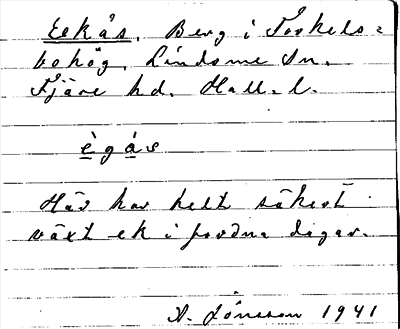 Eekås, Berg i Torkels=
bohög, Lindome Sn.
Fjäre hd. Hall. l.
ègás
Här har helt säkert
växt ek i forna dagar.
A. Jönsson 1941